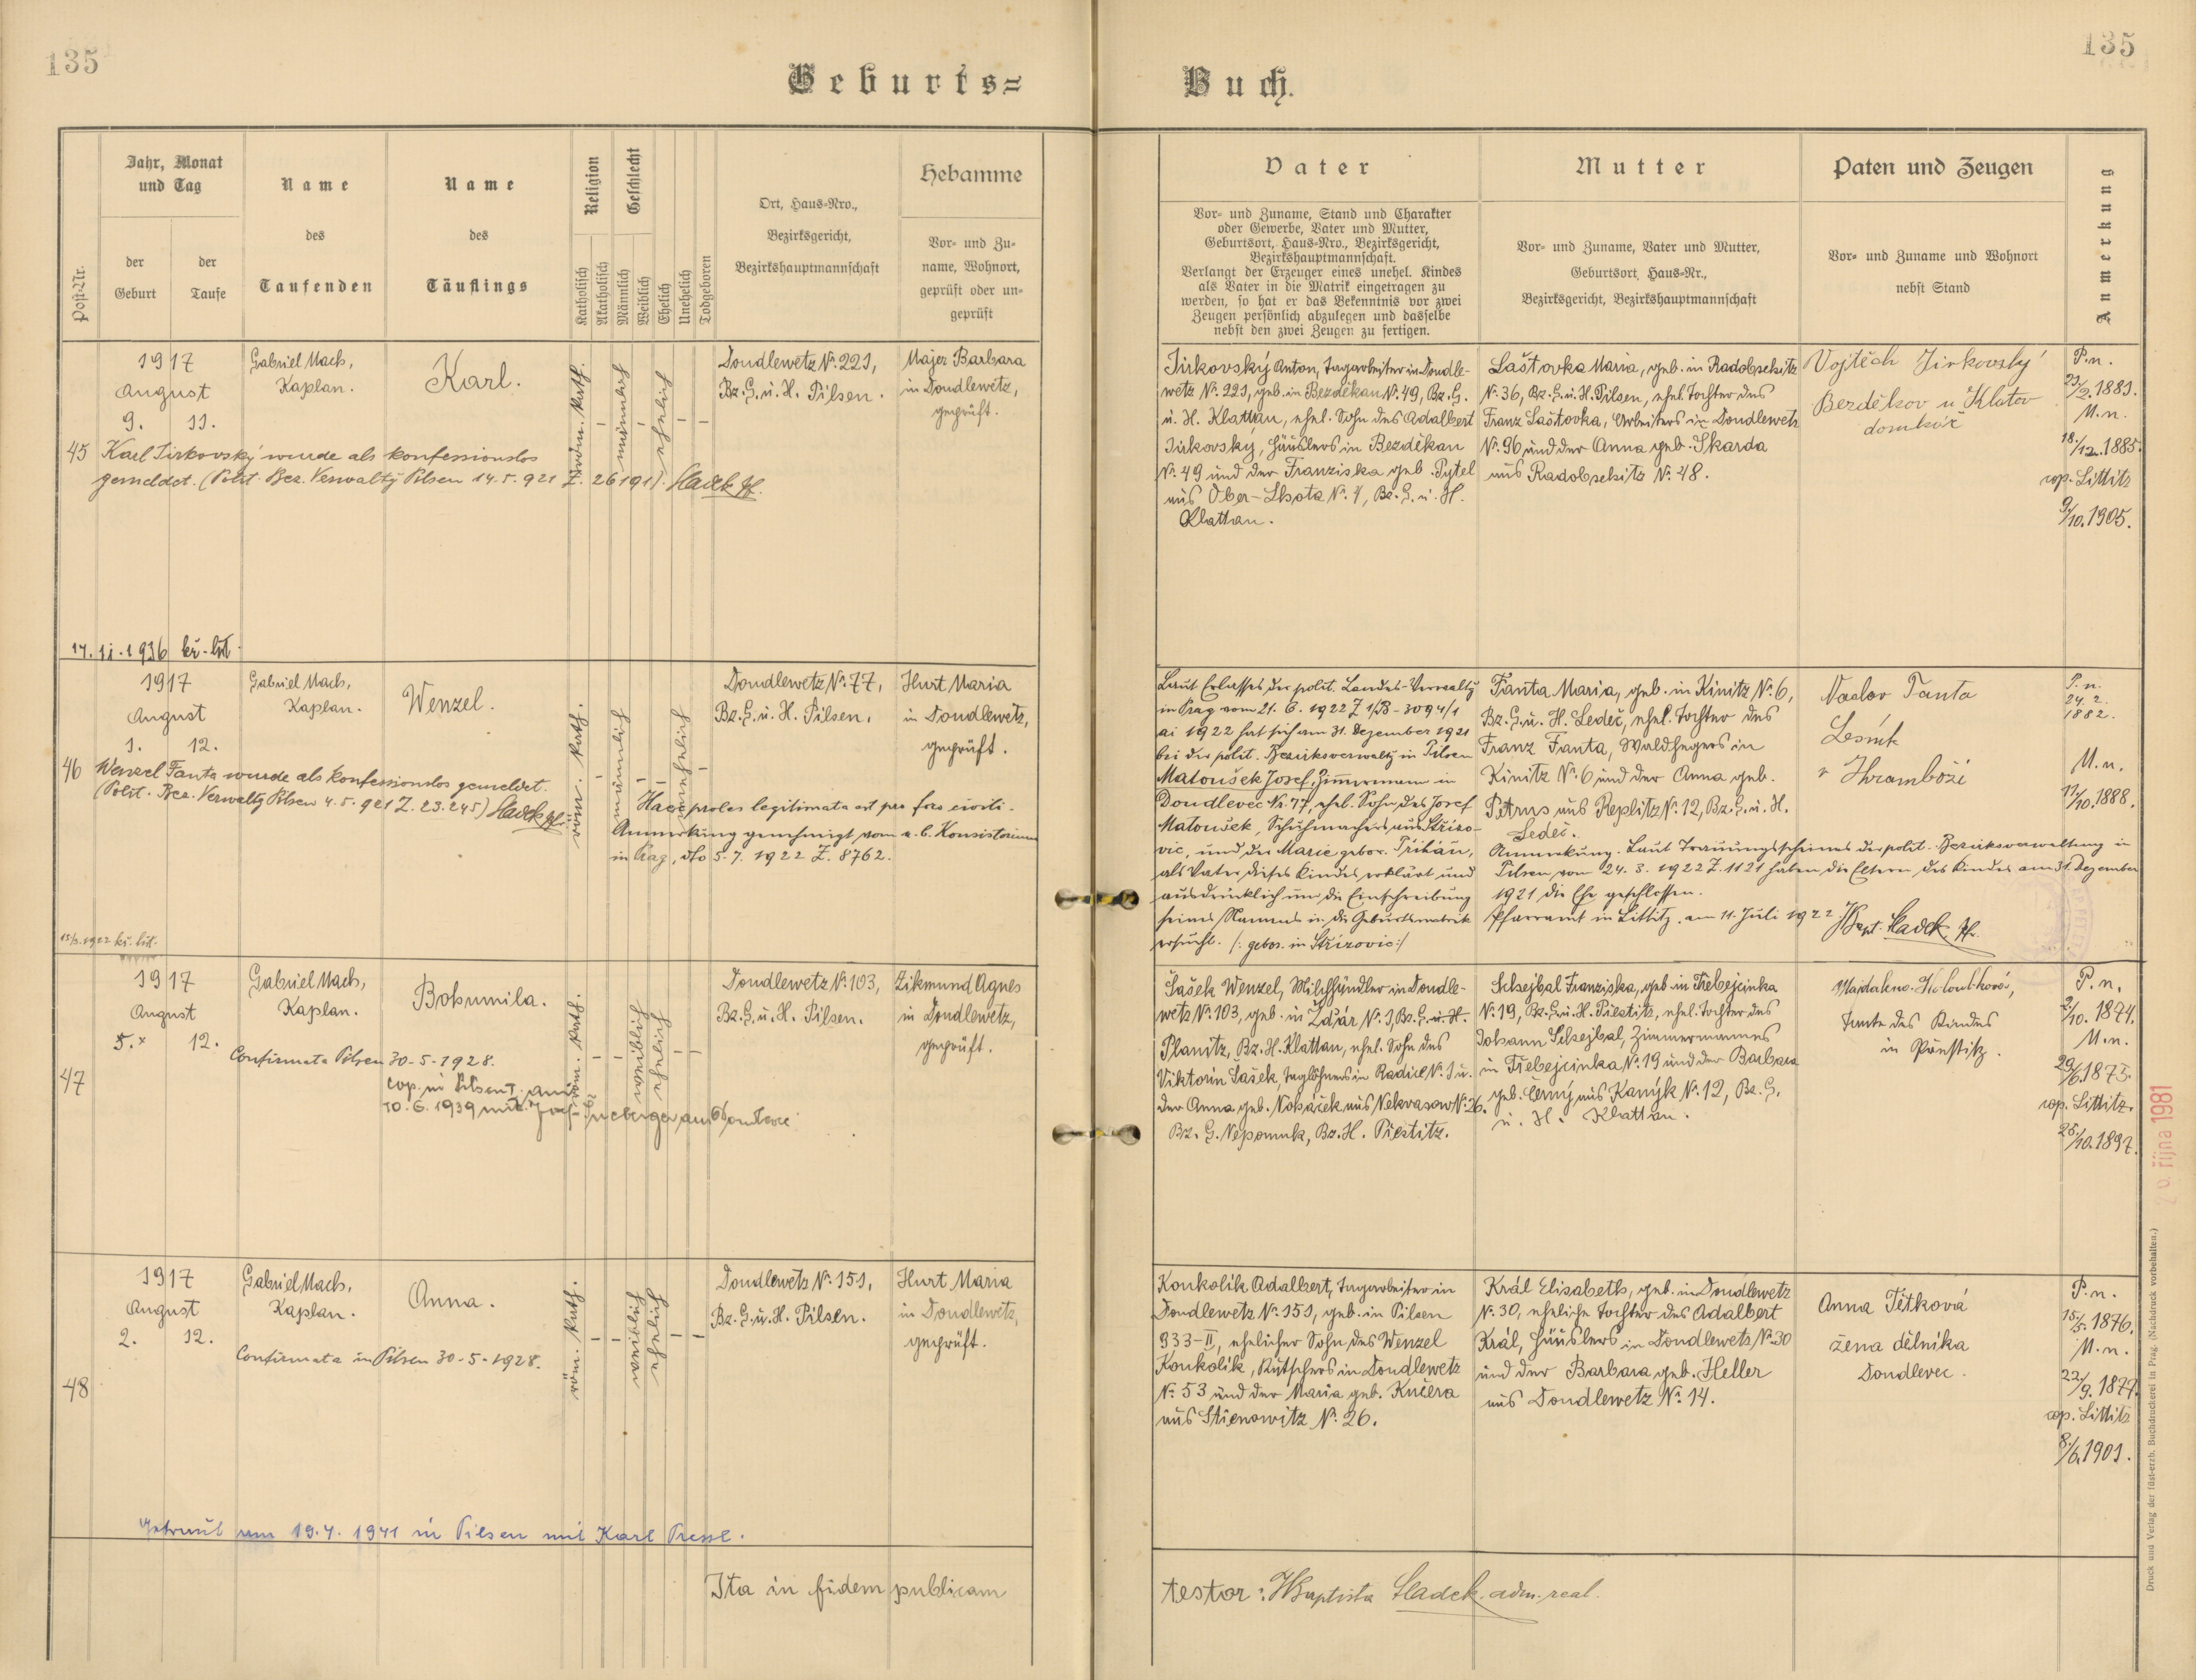 135
135
Geburts=
Buch.
Post-Nr.
Jahr, Monat
und Tag
der
Geburt
der
Taufe
Name
des
Taufenden
Name
des
Täuflings
Religion
Katholisch
Akatholisch
Geschlecht
Männlich
Weiblich
Ehelich
Unehelich
Todgeboren
Ort, Haus=Nro.,
Bezirksgericht,
Bezirkshauptmannschaft
Hebamme
Vor= und Zu=
name, Wohnort,
geprüft oder un=
geprüft
Vater
Vor= und Zuname, Stand und Charakter
oder Gewerbe, Vater und Mutter,
Geburtsort, Haus=Nro., Bezirksgericht,
Bezirkshauptmannschaft.
Verlangt der Erzeuger eines unehel. Kindes
als Vater in die Matrik eingetragen zu
werden, so hat er das Bekenntnis vor zwei
Zeugen persönlich abzulegen und dasselbe
nebst den zwei Zeugen zu fertigen.
Mutter
Vor= und Zuname, Vater und Mutter,
Geburtsort, Haus=Nr.,
Bezirksgericht, Bezirkshauptmannschaft
Paten und Zeugen
Vor= und Zuname und Wohnort
nebst Stand
Anmerkung
45
1917
August
9. 11.
Gabriel Mach,
Kaplan.
Karl.
röm. kath.
männlich
ehelich
Doudlewetz No. 221,
Bz. G. u. H. Pilsen.
Majer Barbara
in Doudlewetz,
geprüft.
Karl Jirkovský wurde als konfessionslos
gemeldet. (Polit. Bez. Verwaltg Pilsen 14. 5. 921 Z. 26191). Sladek Pf.
17. 11. 1936 kř. list
Jirkovský Anton, Tagarbeiter in Doudle-
wetz No. 221, geb. in Bezděkau No. 49, Bz. G.
u. H. Klattau, ehel. Sohn des Adalbert
Jirkovský, Häuslers in Bezděkau
No. 49 und der Franziska geb. Pytel
aus Ober-Lhota No. 7, Bz. G. u. H.
Klattau.
Laštovka Maria, geb. in Radobschitz
No. 36, Bz. G. u. H. Pilsen, ehel. Tochter des
Franz Laštovka, Arbeiters in Doudlewetz
No. 96 und der Anna geb. Skarda
aus Radobschitz No. 48.
Vojtěch Jirkovský
Bezděkov u Klatov
domkář
P. n.
23/2. 1881.
M. n.
18./12. 1885.
cop. Littitz
9/10. 1905.
46
1917
August
1. 12.
Gabriel Mach,
Kaplan.
Wenzel.
röm. kath.
männlich
unehelich
Doudlewetz No. 77,
Bz. G. u. H. Pilsen.
Hurt Maria
in Doudlewetz,
geprüft.
Wenzel Fanta wurde als konfessionslos gemeldet.
(Polit. Bez. Verwaltg Pilsen 4. 5. 921 Z. 23.245) Sladek Pf.
Haec proles legitimata est pro foro civili.
Anmerkung genehmigt vom e. b. Konsistorium
in Prag, dto 5. 7. 1922 Z. 8762.
12/3. 1922 kř. list.
Laut Erlasses der polit. Landes-Verwaltg
in Prag vom 21. 6. 1922 Z 1/B - 3094/1
ai 1922 hat sich am 31. Dezember 1921
bei der polit. Bezirksverwaltg in Pilsen
Matoušek Josef, Zimmermann in
Doudlevec Nr. 77, ehel. Sohn des Josef
Matoušek, Schuhmachers aus Střížo-
vic, und der Marie gebor.
als Vater dieses Kindes erklärt und
ausdrücklich um die Einschreibung
seines Namens in die Geburtsmatrik
ersucht. /: gebor. in Střížovic :/
Fanta Maria, geb. in Kinitz No. 6,
Bz. G. u. H. Ledeč, ehel. Tochter des
Franz Fanta, Waldhegers in
Kinitz No. 6 und der Anna geb.
Petrus aus Řeplitz No. 12, Bz. G. u. H.
Ledeč.
Anmerkung. Laut Trauungsscheines der polit. Bezirksverwaltung in
Pilsen vom 24. 3. 1922 Z. 1121 haben die Eltern des Kindes am 31. Dezember
1921 die Ehe geschlossen.
Pfarramt in Littitz, am 11. Juli 1922 Sladek Pf.
Václav Fanta
Lesník
P. n.
24. 2.
1882.
M. n.
11/10. 1888.
47
1917
August
5. x 12.
Gabriel Mach,
Kaplan.
Bohumila.
röm. kath.
weiblich
ehelich
Doudlewetz No. 103,
Bz. G. u. H. Pilsen.
Zikmund Agnes
in Doudlewetz,
geprüft.
Confirmata Pilsen 30-5-1928.
cop. in Pilsen
10. 6. 1939 mit Josef
Šašek Wenzel, Milchhändler in Doudle-
wetz No. 103, geb. in Žďár No. 1, Bz. G. u. H.
Planitz, Bz. H. Klattau, ehel. Sohn des
Viktorin Šašek, Taglöhners in Radice No. 1 u.
der Anna geb. Nosáček aus Nekvasow No. 26.
Bz. G. Nepomuk, Bz. H. Přestitz.
Schejbal Franziska, geb. in Třebejcinka
No. 19, Bz. G. u. H. Přestitz, ehel. Tochter des
Johann Schejbal, Zimmermannes
in Třebejcinka No. 19 und der Barbara
geb. Černý aus Kanýk No. 12, Bz. G.
u. H. Klattau.
Magdalena Holoubková,
Tante des Kindes
in Přestitz.
P. n.
2/10. 1874.
M. n.
29/6. 1875.
cop. Littitz.
25./10. 1897.
48
1917
August
2. 12.
Gabriel Mach,
Kaplan.
Anna.
röm. kath.
weiblich
ehelich
Doudlewetz No. 151,
Bz. G. u. H. Pilsen.
Hurt Maria
in Doudlewetz,
geprüft.
Confirmata in Pilsen 30-5-1928.
Getraut am 19. 4. 1941 in Pilsen mit Karl Pressl.
Koukolík Adalbert, Tagarbeiter in
Doudlewetz No. 151, geb. in Pilsen
933-II, ehelicher Sohn des Wenzel
Koukolík, Kutschers in Doudlewetz
No. 53 und der Maria geb. Kučera
aus Stienowitz No. 26.
Král Elisabeth, geb. in Doudlewetz
No. 30, eheliche Tochter des Adalbert
Král, Häuslers in Doudlewetz No. 30
und der Barbara geb. Heller
aus Doudlewetz No. 14.
Anna Tětková
žena dělníka
Doudlevec.
P. n.
15/5. 1876.
M. n.
22/9. 1877.
cop. Littitz
8./6. 1901.
Ita in fidem publicam
testor: JBaptista Sladek adm. real.
října 1981
Druck und Verlag der füst-erzb. Buchdruckerei in Prag. (Nachdruck vorbehalten.)